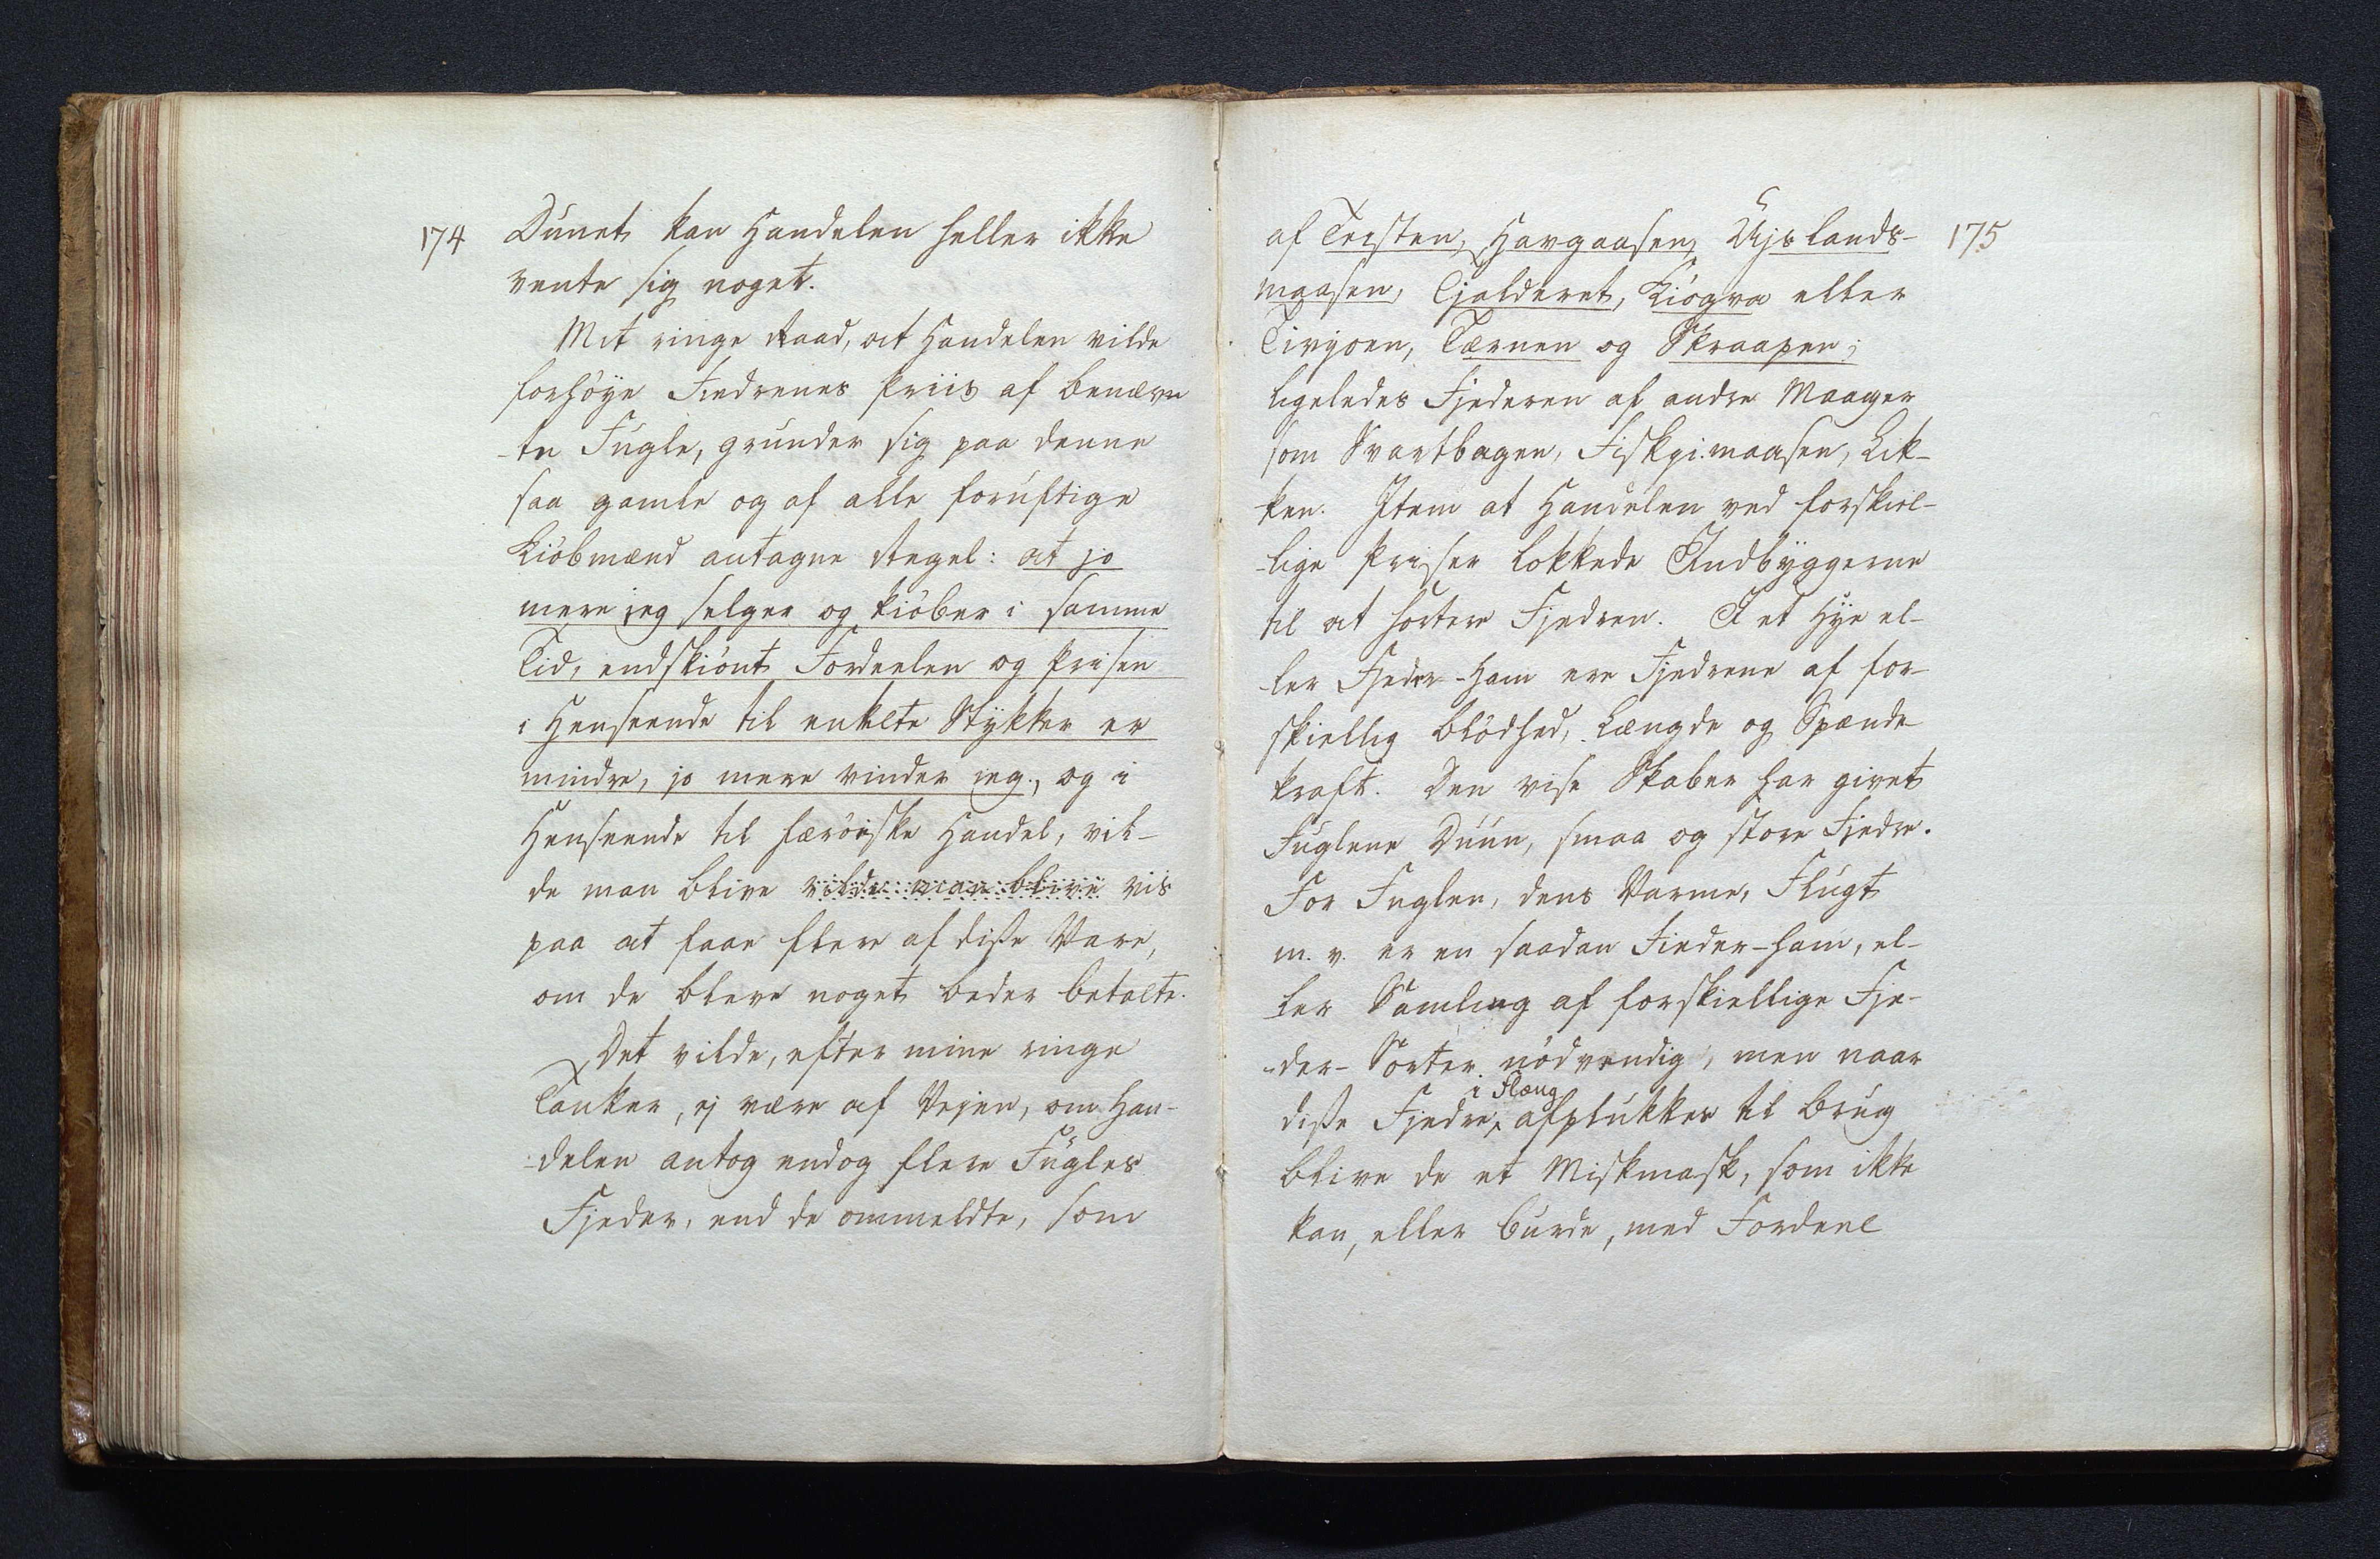 174
Dunet kan Handelen heller ikke
vente sig noget.
Mit ringe Raad, at Handelen vilde
forhöye Fiedrenes Priis af benævn
-te Fugle, grunder sig paa denne
saa gamle og af alle fornuftige
Kiöbmænd antagne Regel: at jo
mere jeg selger og kiöber i samme
Tid, endskiönt Fordeelen og Prisen
i Henseende til enkelte Stykker er
mindre, jo mere vinder jeg., og i
Henseende til færöiske Handel, vil-
de man blive vilde man blive vis
paa at faae flere af disse Vare,
om de bleve noget beder betalte.
Det vilde, efter mine ringe
Tanker, ej være af Vejen, om Han-
-delen antog endog flere Fugles
Fjeder, end de ommeldte, som
175
af Teisten, Havgaasen, Ujslands-
maasen, Tjalderet, Kiogva eller
Tivjoen, Tærnen og Skraapen;
ligeledes Fjederen af andre Maager
som Svartbagen, Fiskji.maasen, Lik-
ken. Item at Handelen ved forskiel-
-lige Priser lokkede Indbyggerne
til at sortere Fjedren. I et Hye el-
-ler Fjeder-Ham ere Fjedrene af for-
skiellig blödhed, Længde og Spænde
kraft. Den vise Skaber har givet
Fuglene Duun, smaa og store Fjedre.
For Fuglen, dens Varme, Flugt
m. v. er en saadan Fieder-ham, el-
ler Samling af forskiellige Fje-
-der-Sorter nödvendig, men naar
i Flæng
disse Fjedre, afplukkes til Brug
blive de et Miskmask, som ikke
kan, eller burde, med Fordeel